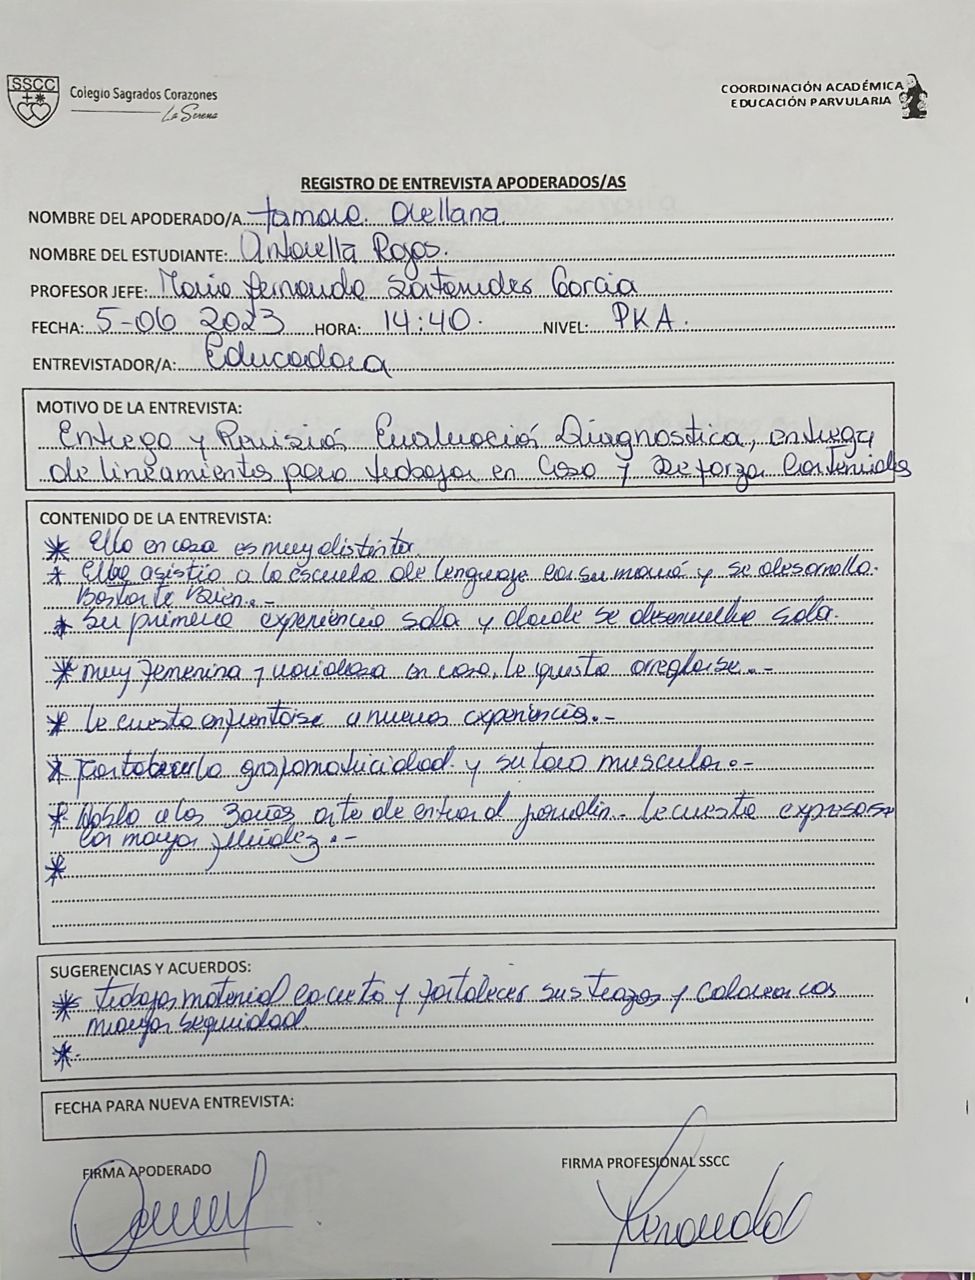 SSCC
Colegio Sagrados Corazones
La Serena
COORDINACIÓN ACADÉMICA
EDUCACIÓN PARVULARIA
REGISTRO DE ENTREVISTA APODERADOS/AS
NOMBRE DEL APODERADO/A Tamara Orellana
NOMBRE DEL ESTUDIANTE: Antonella Rojas.
PROFESOR JEFE: Maria Fernanda Garcia
FECHA: 5-06 2023 HORA: 14:40. NIVEL: PKA.
ENTREVISTADOR/A: Educadora
MOTIVO DE LA ENTREVISTA:
Entrega y Revisión Evaluación Diagnostica, entrega
de lineamientos para trabajar en Casa y Reforzar Contenidos
CONTENIDO DE LA ENTREVISTA:
* Ella en casa es muy distinta.
* Ella asistio a la escuela de lenguaje con su mamá y se desarrolla.
Bastante bien.-
* Su primera experiencia sola y donde se desenvuelve sola.
* muy femenina y vanidosa en casa, le gusta arreglarse.-
* le cuesta enfrentarse a nuevas experiencia.-
* Fortalecer la grafomotricidad y su tono muscular.-
* Hablo a los 3 años ante de entrar al jardin.- le cuesta expresarse
con mayor fluidez.-
*
SUGERENCIAS Y ACUERDOS:
* trabajar material concreto y fortalecer sus trazos y colorear con
mayor seguridad
*.
FECHA PARA NUEVA ENTREVISTA:
FIRMA APODERADO
FIRMA PROFESIONAL SSCC